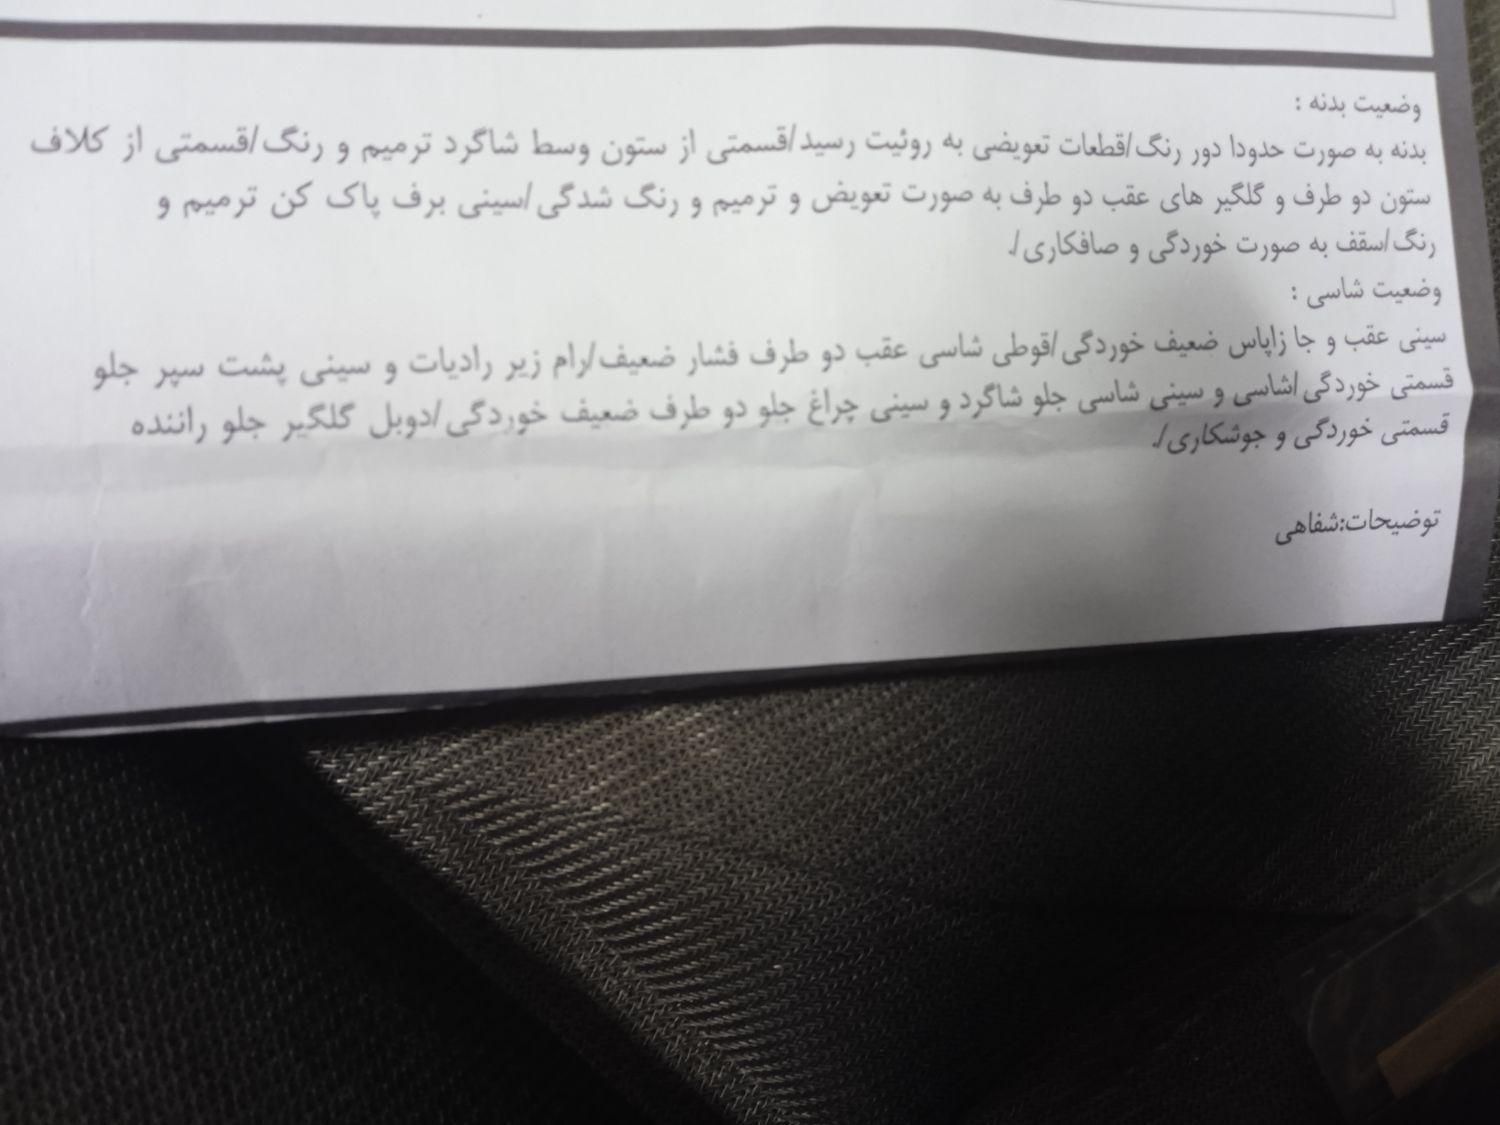 وضعیت بدنه :
بدنه به صورت حدودا دور رنگ/قطعات تعویضی به روئیت رسید/قسمتی از ستون وسط شاگرد ترمیم و رنگ/قسمتی از کلاف
ستون دو طرف و گلگیر های عقب دو طرف به صورت تعویض و ترمیم و رنگ شدگی/سینی برف پاک کن ترمیم و
رنگ/سقف به صورت خوردگی و صافکاری/.
وضعیت شاسی :
سینی عقب و جا زاپاس ضعیف خوردگی/قوطی شاسی عقب دو طرف فشار ضعیف/رام زیر رادیات و سینی پشت سپر جلو
قسمتی خوردگی/شاسی و سینی شاسی جلو شاگرد و سینی چراغ جلو دو طرف ضعیف خوردگی/دوبل گلگیر جلو راننده
قسمتی خوردگی و جوشکاری/.
توضیحات:شفاهی